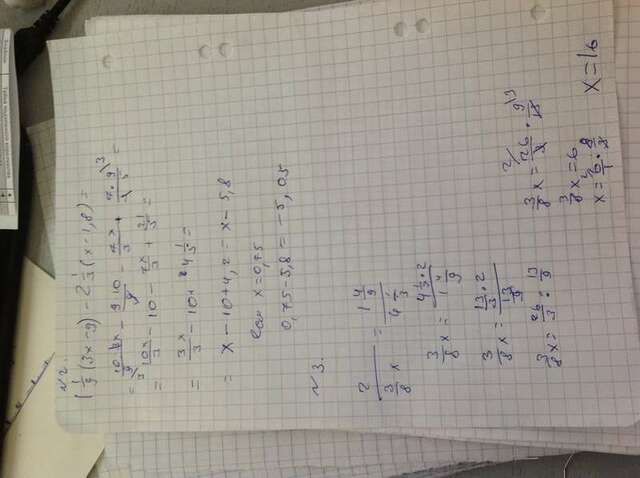 N2.
1 1/9 (3x-9) - 2 1/3 (x-1,8) =
= 10·3x/9 - 9·10/9 - 7x/3 + 7·9/3·5 =
= 10x/3 - 10 - 7x/3 + 21/5 =
= 3x/3 - 10 + 4 1/5 =
= x - 10 + 4,2 = x - 5,8
Если x = 0,75
0,75 - 5,8 = -5,05
N3.
2 / (3/8 x) = 1 4/9 / 4 1/3
3/8 x = 4 1/3 · 2 / 1 4/9
3/8 x = 13/3 · 2 / 13/9
3/8 x = 26/3 : 13/9
3/8 x = 26/3 · 9/13
3/8 x = 6
x = 6/1 · 8/3
x = 16